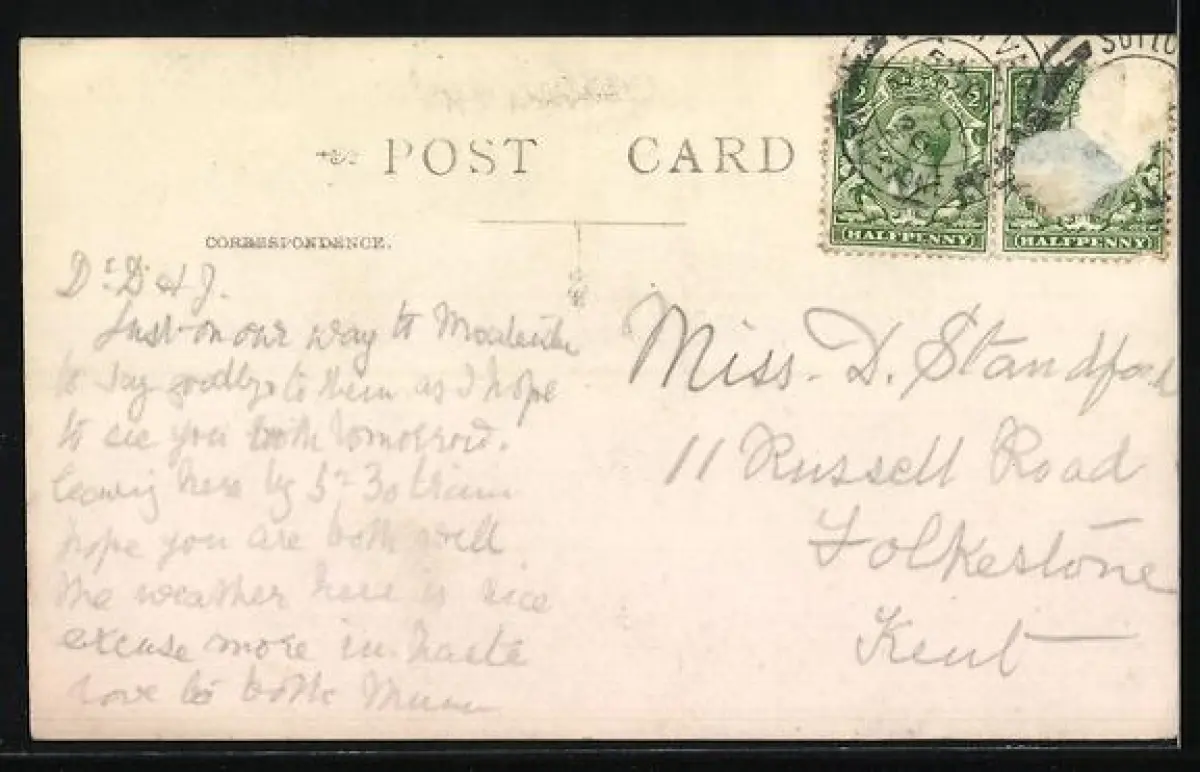 POST CARD
CORRESPONDENCE.
Dr D & J.
Just on our way to
to say goodbye to them as I hope
to see you both tomorrow.
leaving here by 5-30 train
hope you are both well
the weather here is nice
excuse more in haste
love to both Mum
HALFPENNY
HALFPENNY
Miss. D. Standford
11 Russell Road
Folkestone
Kent